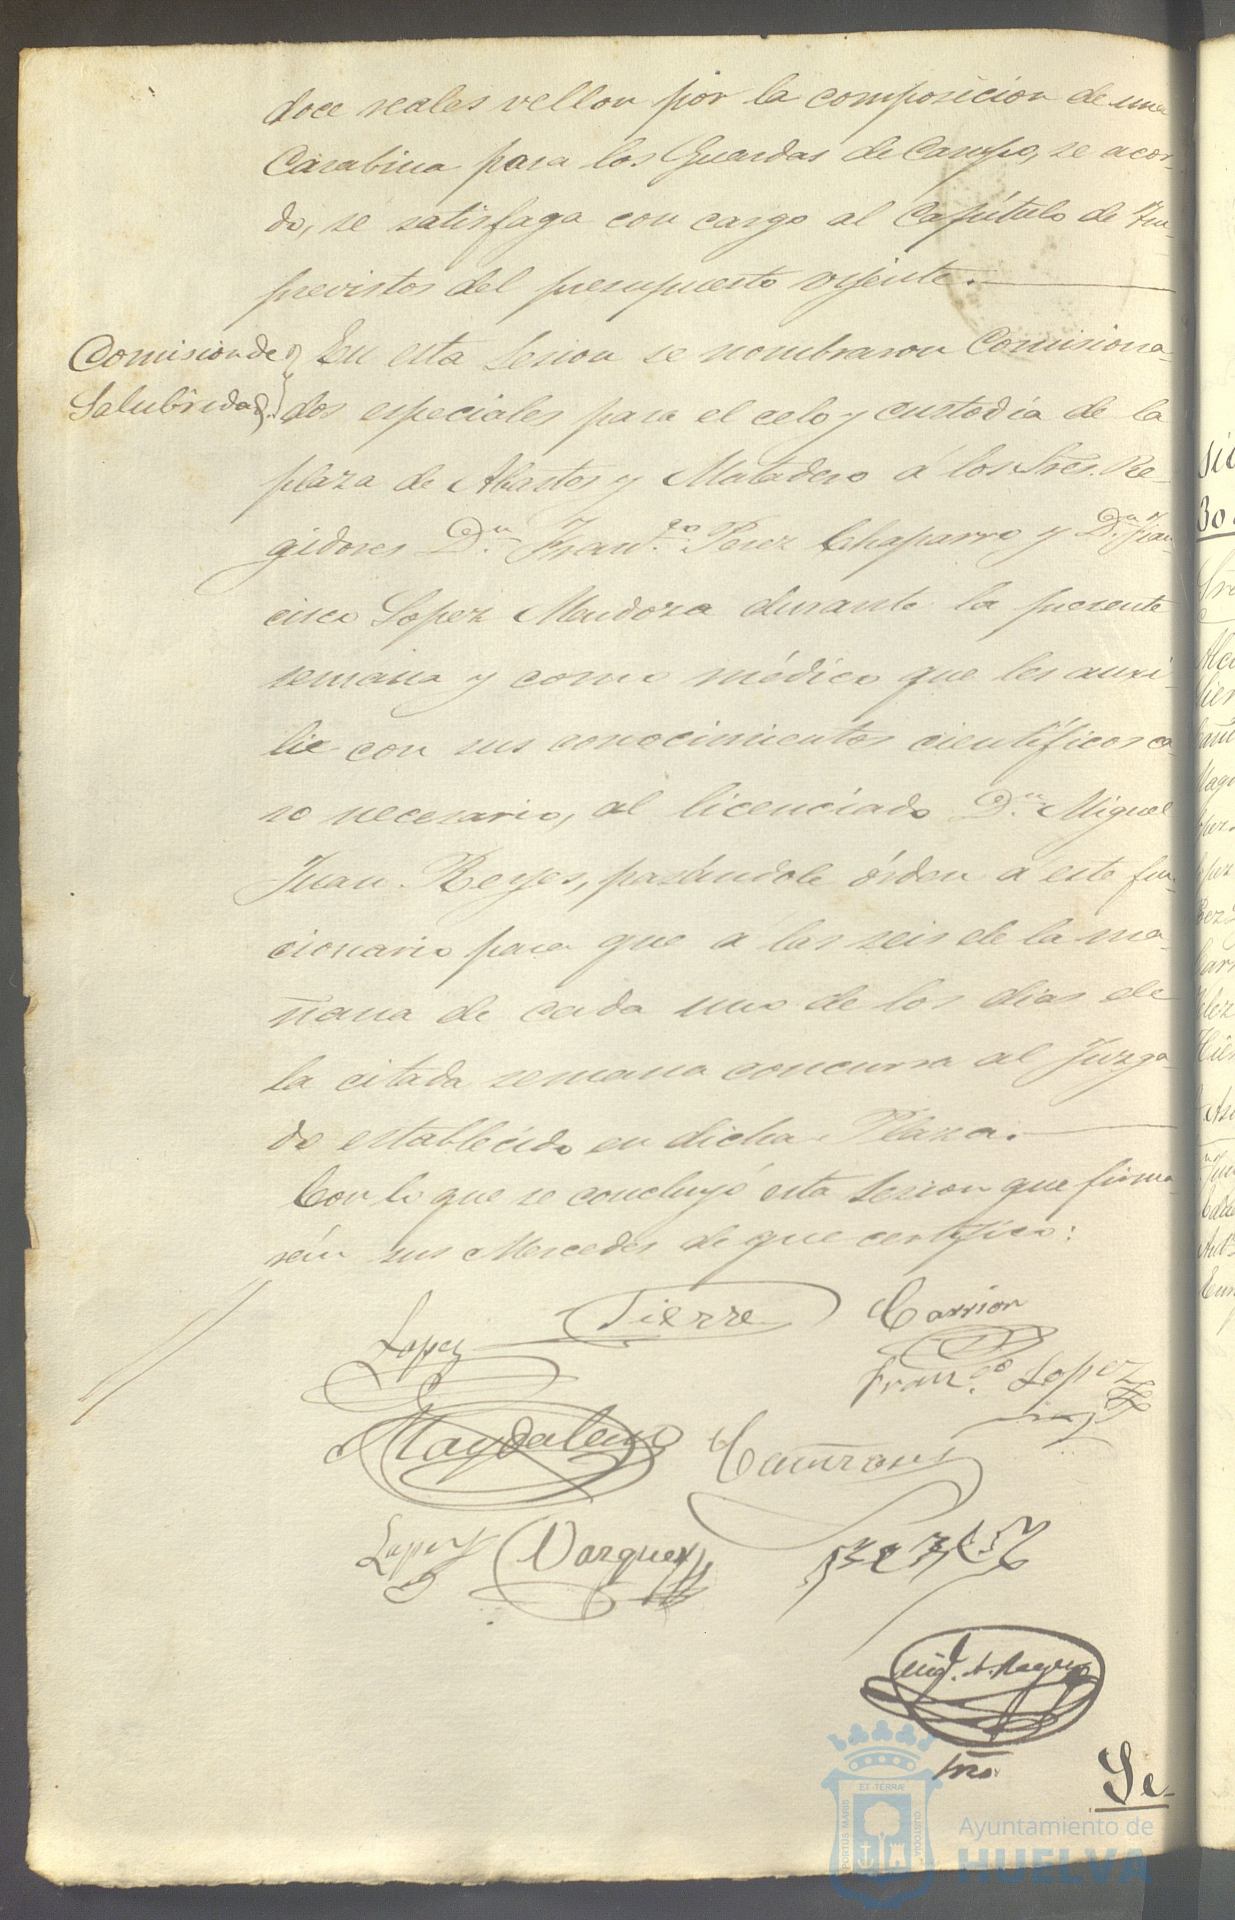 doce reales vellon por la composicion de una
Carabina para los Guardas de Campo, se acor-
do, se satisfaga con cargo al Capítulo de Im-
previstos del presupuesto vijente.
Comision de
Salubridad.
En esta sesion se nombraron Comisiona-
dos especiales para el celo y custodia de la
plaza de Abastos y Matadero a los Sres. Re-
gidores Dn. Franco. Perez Chaparro y Dn. Fran-
cisco Lopez Mendoza durante la presente
semana y como médico que les auxi-
lie con sus conocimientos científicos ca-
so necesario, al licenciado Dn. Miguel
Juan Reyes, pasándole órden a este fun-
cionario para que a las seis de la ma-
ñana de cada uno de los dias de
la citada semana concurra al Juzga-
do establecido en dicha Plaza.
Con lo que se concluyó esta sesion que firma-
rán sus Mercedes de que certifico:
Lopez Tierre Carrion
Franco. Lopez
Magdaleno
Lopez Vazquez
Srio
Se-
ET TERRÆ
PORTUS MARIS
CUSTODIA
Ayuntamiento de
HUELVA
30